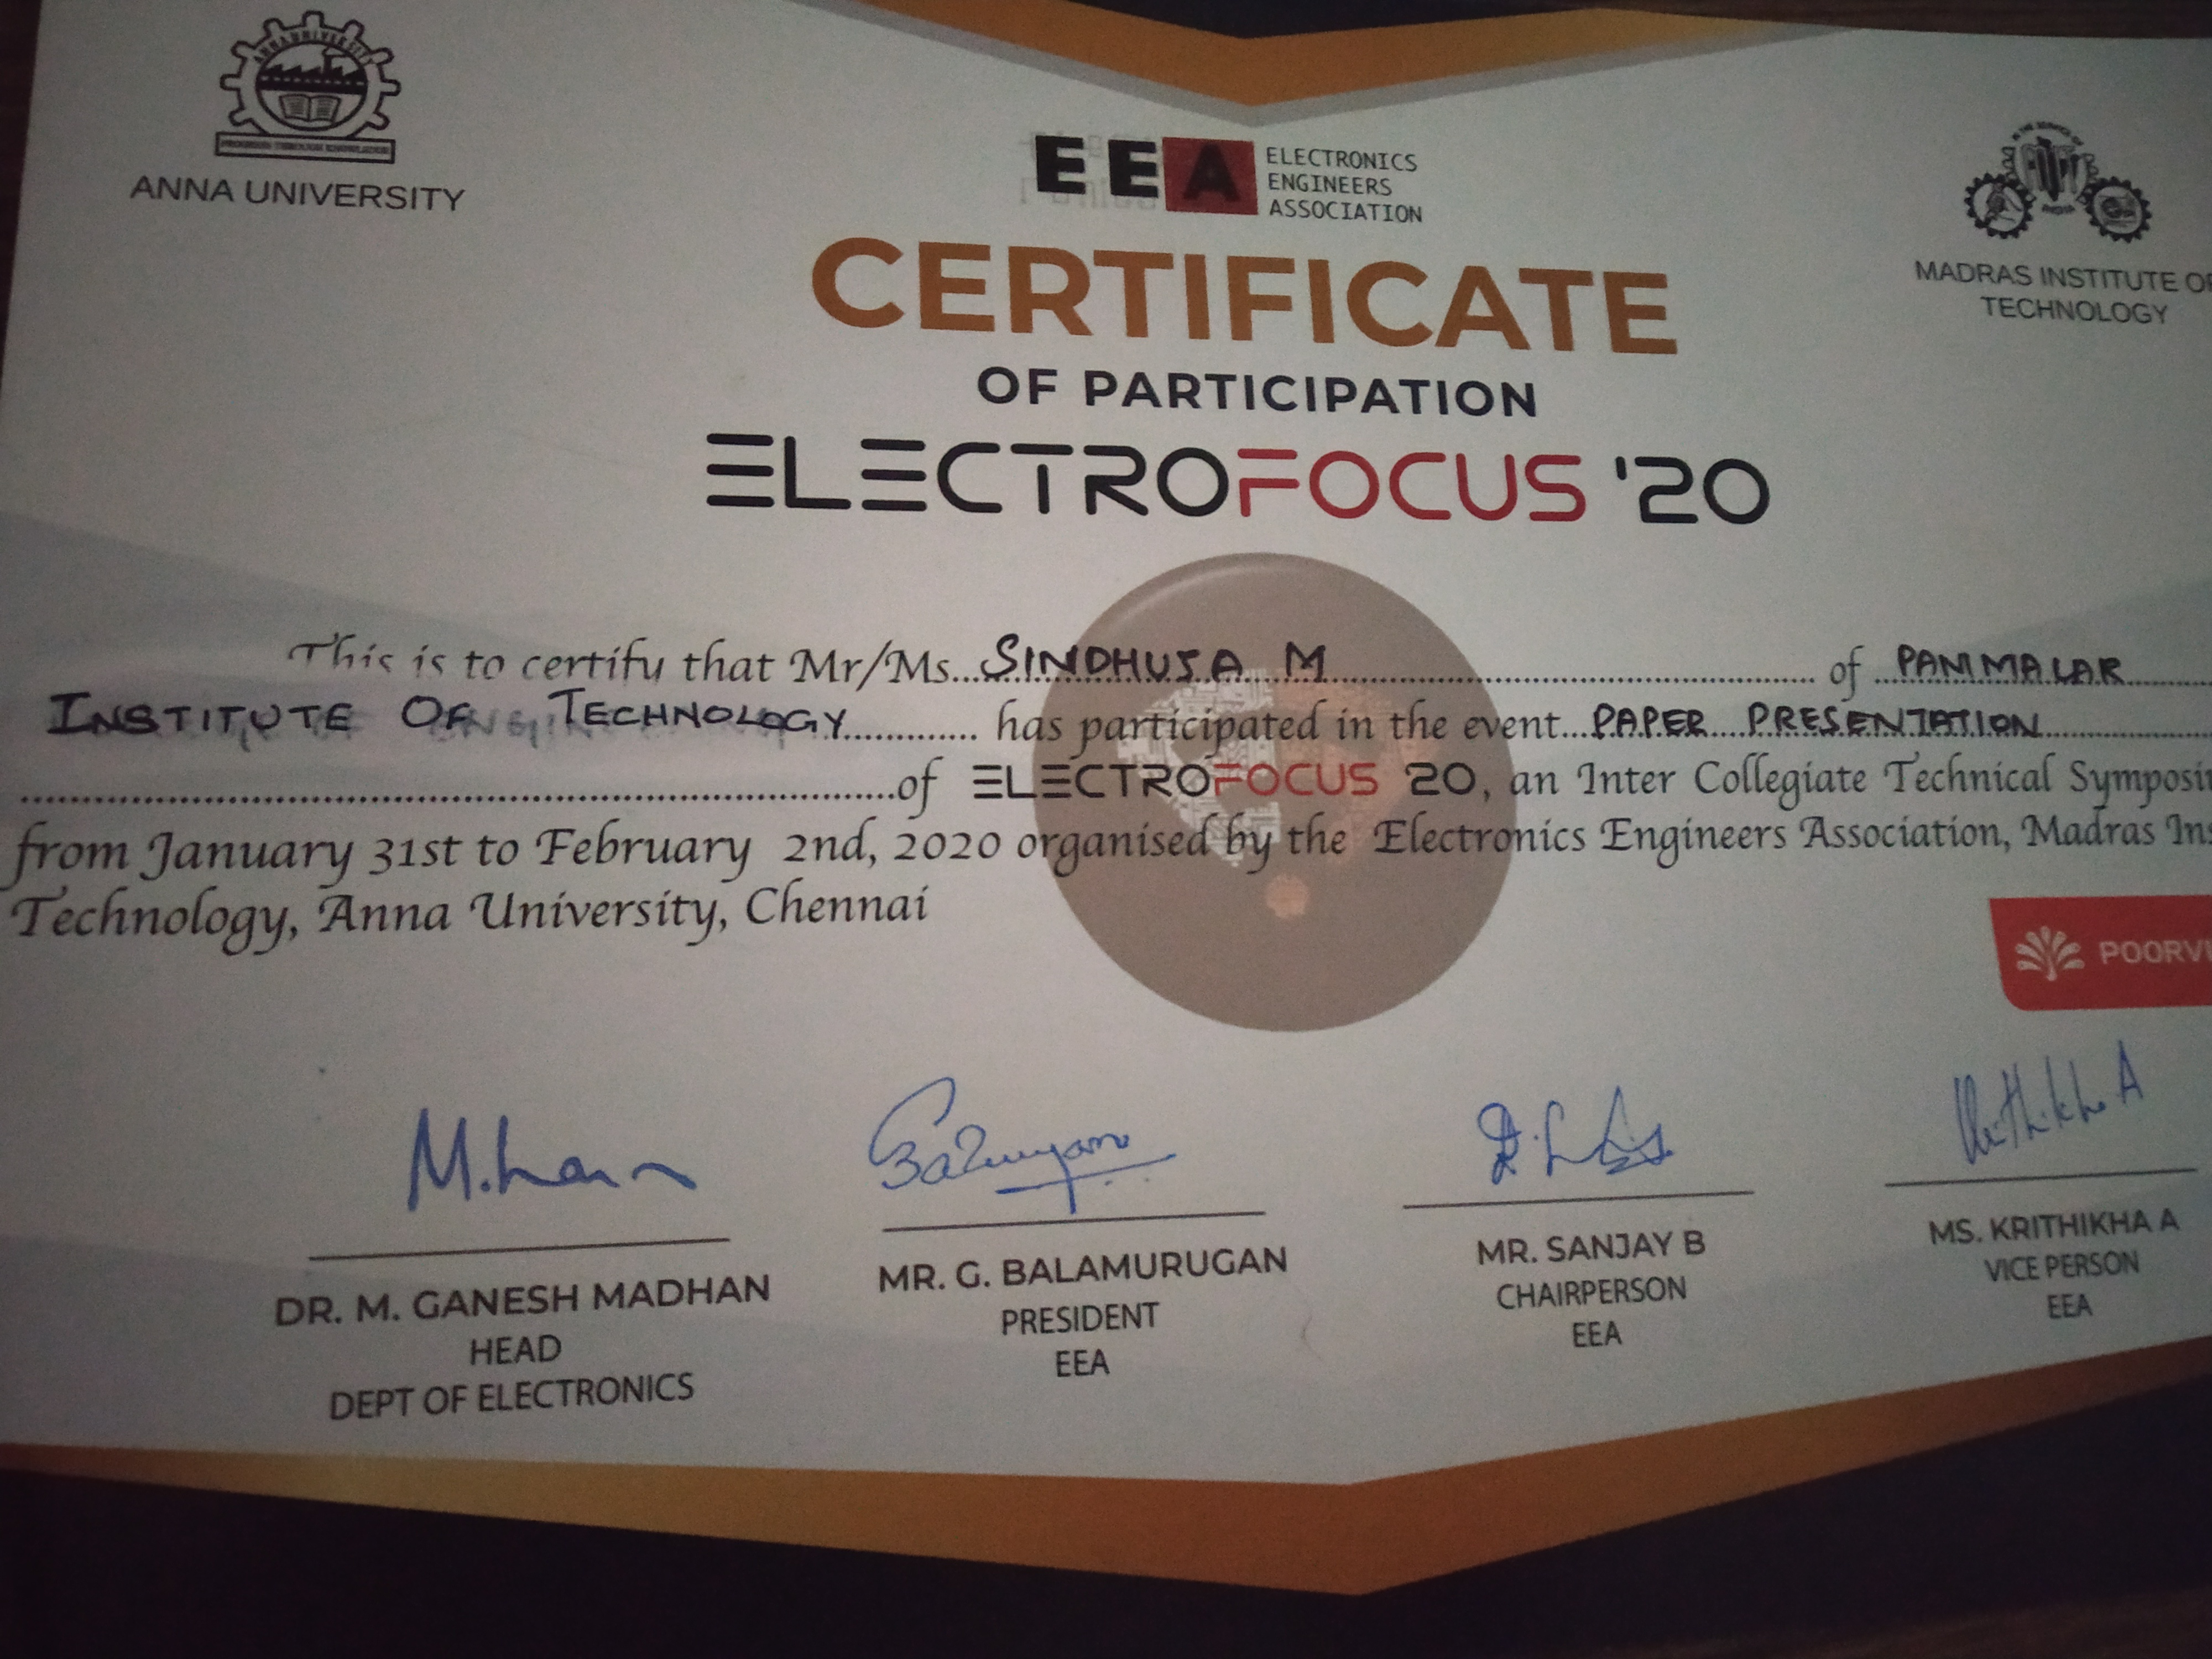 ANNA UNIVERSITY
PROGRESS THROUGH KNOWLEDGE
ANNA UNIVERSITY
EEA ELECTRONICS
ENGINEERS
ASSOCIATION
MADRAS INSTITUTE OF
TECHNOLOGY
CERTIFICATE
OF PARTICIPATION
ELECTROFOCUS '20
This is to certify that Mr/Ms...SINDHUJA M............of PANIMALAR
INSTITUTE OF TECHNOLOGY............ has participated in the event...PAPER PRESENTATION
............of ELECTROFOCUS '20, an Inter Collegiate Technical Symposi
from January 31st to February 2nd, 2020 organised by the Electronics Engineers Association, Madras Ins
Technology, Anna University, Chennai
POORVI
M.
Balamurugan
Krithikha A
DR. M. GANESH MADHAN
HEAD
DEPT OF ELECTRONICS
MR. G. BALAMURUGAN
PRESIDENT
EEA
MR. SANJAY B
CHAIRPERSON
EEA
MS. KRITHIKHA A
VICE PERSON
EEA